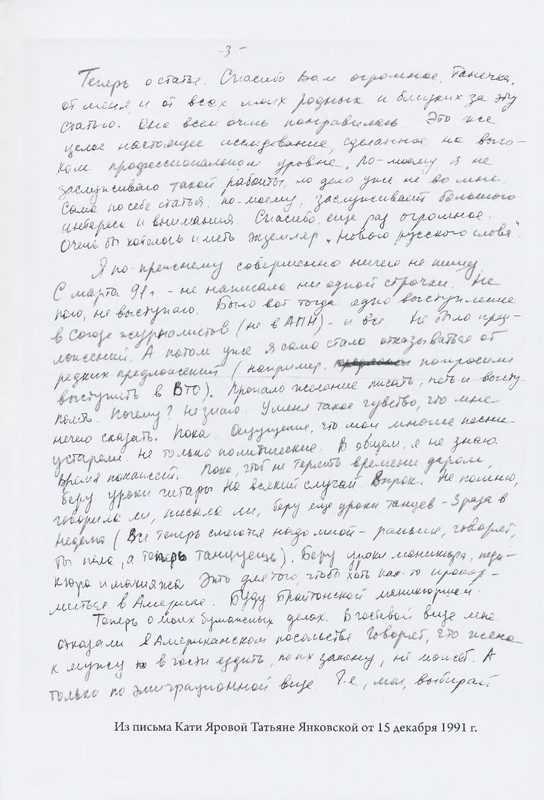 -3-
Теперь о статье. Спасибо Вам огромное, Танечка,
от меня и от всех моих родных и близких за эту
статью. Она всем очень понравилась. Это же
целое настоящее исследование, сделанное на высо-
ком профессиональном уровне. По-моему я не
заслуживаю такой работы, но дело уже не во мне.
Сама по себе статья, по-моему, заслуживает большого
интереса и внимания. Спасибо еще раз огромное.
Очень бы хотелось иметь экземляр „Нового русского слова".
Я по-прежнему совершенно ничего не пишу.
С марта 91 г. - не написала ни одной строчки. Не
пою, не выступаю. Было вот тогда одно выступление
в Союзе журналистов (не в АПН) - и все. Не было пред-
ложений. А потом уже я сама стала отказываться от
редких предложений (например, попросили
выступить в ВТО). Пропало желание писать, петь и высту-
пать. Почему? Не знаю. У меня такое чувство, что мне
нечего сказать. Пока. Ощущение, что мои многие песни
устарели. Не только политические. В общем, я не знаю.
Время покажет. Пока, чтоб не терять времени даром,
беру уроки гитары. На всякий случай. Впрок. Не помню,
говорила ли, писала ли, беру еще уроки танцев - 3 раза в
неделю (Все теперь смеются надо мной - раньше, говорят,
ты пела, а теперь танцуешь). Беру уроки маникюра, педи-
кюра и макияжа. Это для того, чтобы хоть как-то прокор-
миться в Америке. Буду Брайтонской маникюршей.
Теперь о моих бумажных делах. В гостевой визе мне
отказали в Американском посольстве. Говорят, что жена
к мужу в гости ездить, по их закону, не может. А
только по эмиграционной визе. Т.е., мол, выбирай
Из письма Кати Яровой Татьяне Янковской от 15 декабря 1991 г.